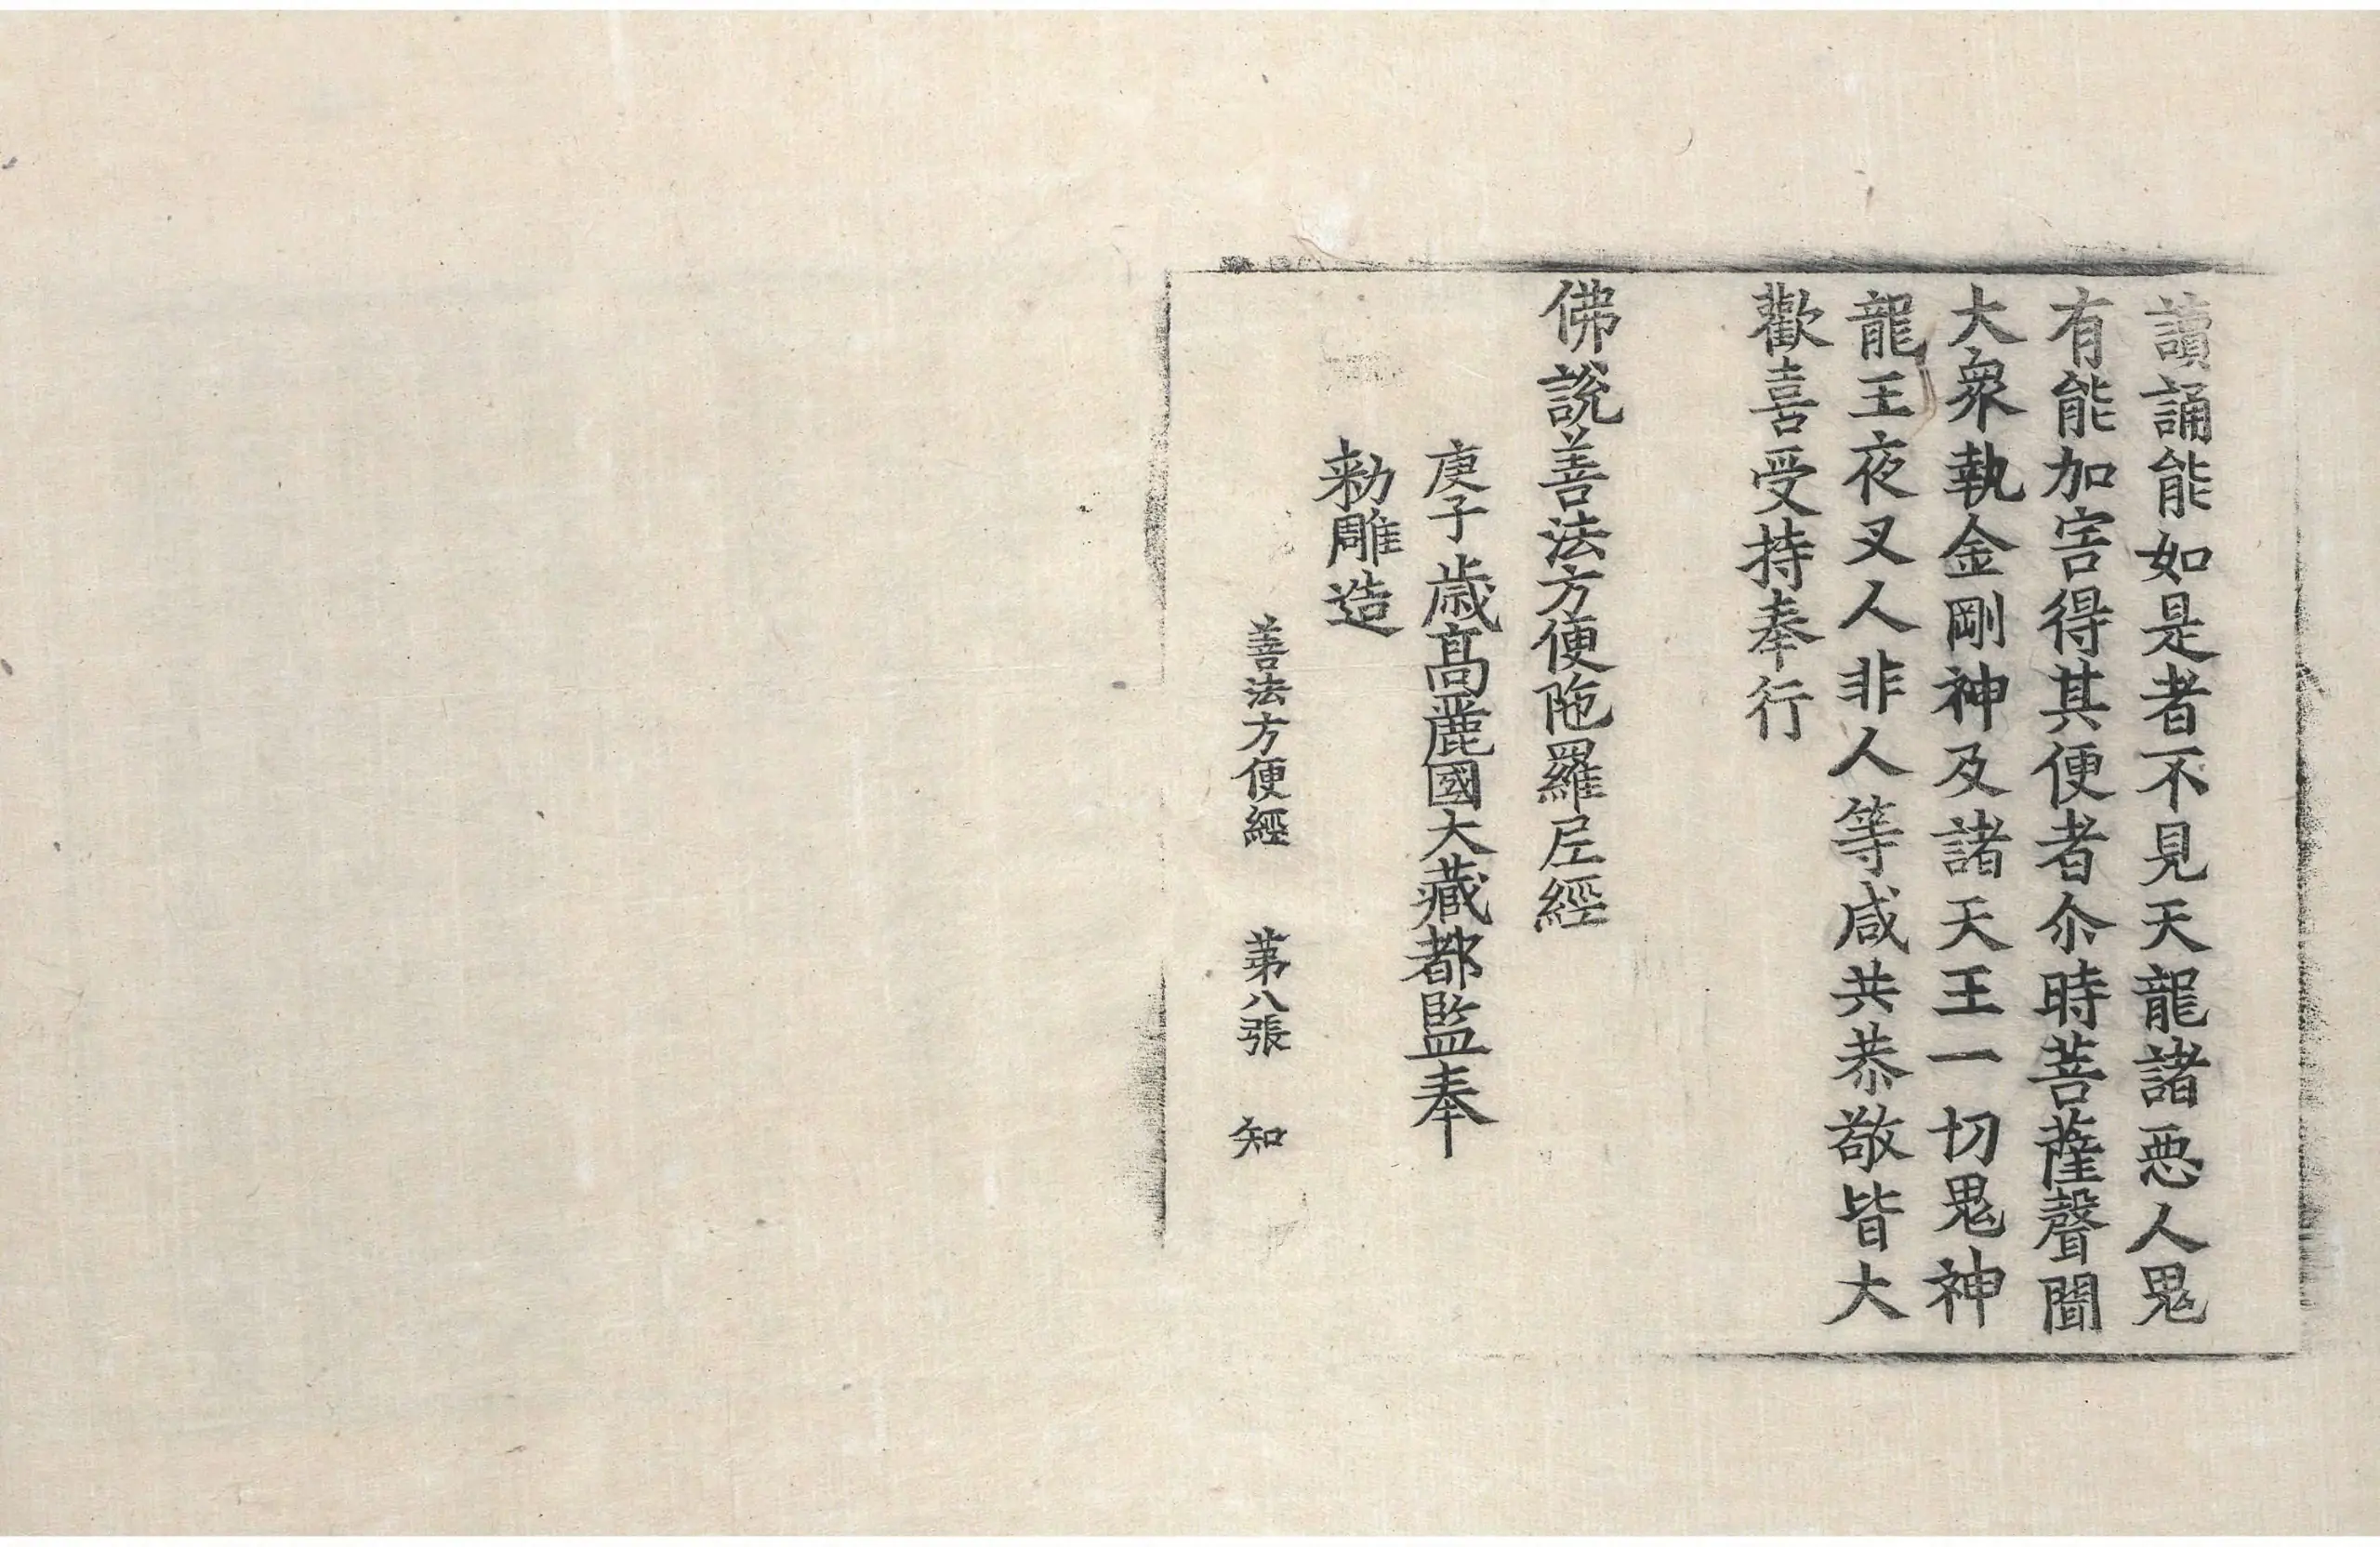 讀誦能如是者不見天龍諸惡人鬼
有能加害得其便者尒時菩薩聲聞
大衆執金剛神及諸天王一切鬼神
龍王夜叉人非人等咸共恭敬皆大
歡喜受持奉行
佛說善法方便陁羅尼經
庚子歲高麗國大藏都監奉
勑雕造
善法方便經 第八張 知